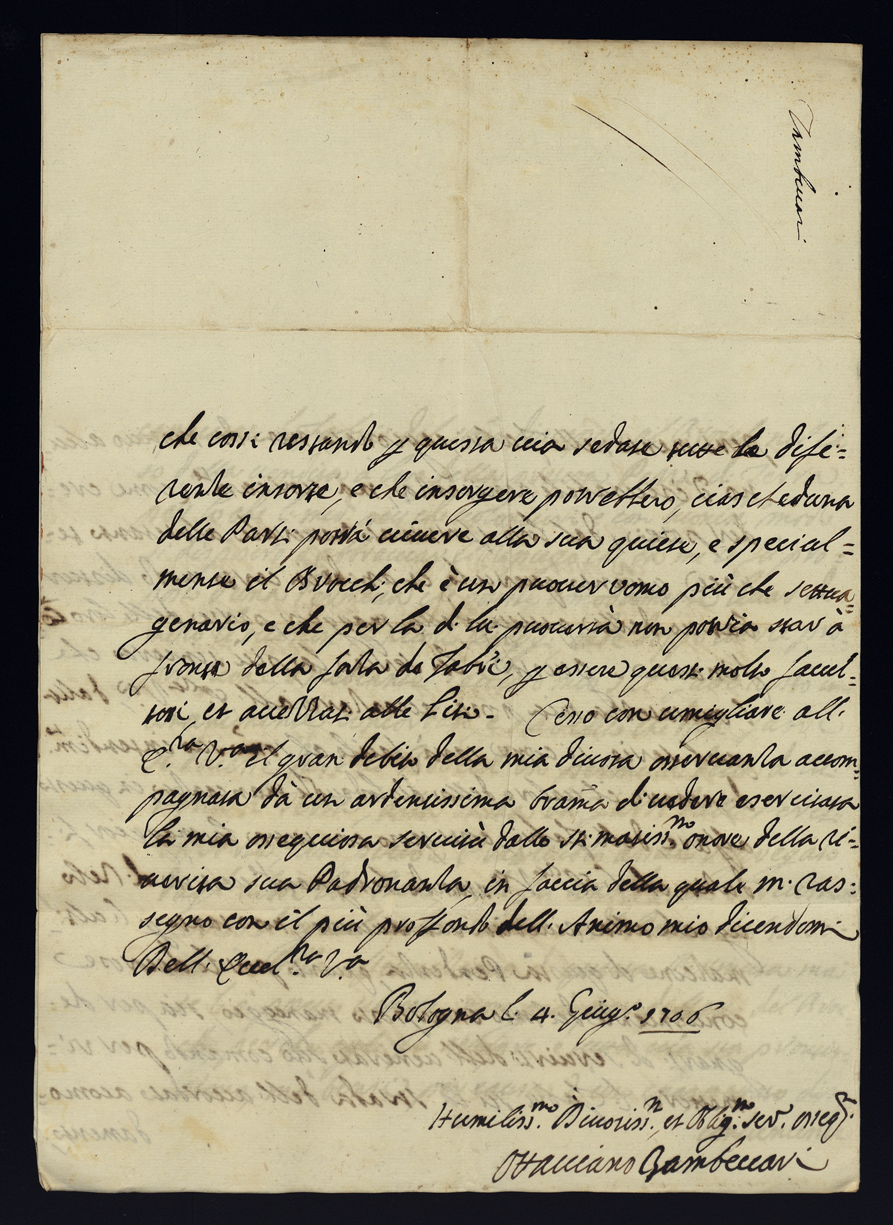 Zambeccari
che cosi restando p questa via sedate tutte le dife=
renze insorte, e che insorgere potrettero, ciascheduna
delle Parti potrà vivere alla sua quiete, e special=
mente il Brocchi, che è un puover uomo più che settua=
genario, e che per la di lui puovertà non potria star à
fronte della forza de Fabri, p essere questi molto facul=
tosi, et accellrati alle liti. Cesso con umigliare all'
E.za V.ra il gran debito della mia divota osservanza accom=
pagnata dà un ardentissima brama di vedere esercitata
la mia ossequiosa servitù dallo stimatiss.mo onore della ri=
verita sua Padronanza, in faccia della quale mi ras=
segno con il più proffondo dell' Animo mio dicendomi
Dell' Eccel.za V.ra
Bologna li 4. Giug.o 1706
Humiliss.mo Divotiss.mo, et Oblig.mo ser.e osseq.
Ottaviano Zambeccari